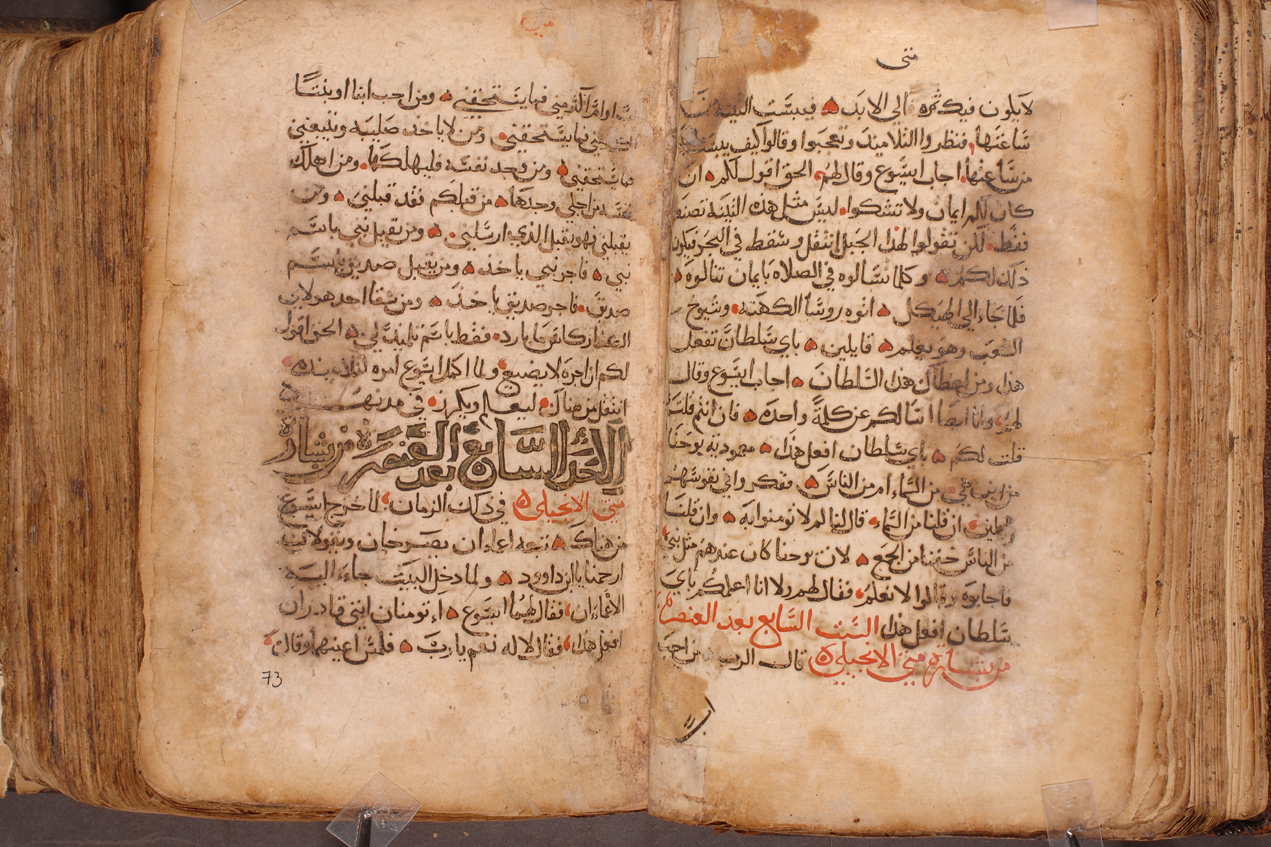 متى
لا يكون فيك ثمره الي الابد فيبست التينه
ساعتها فنظروا التلاميذ وتعجبوا وقالوا كيف يبست
من ساعتها اجاب ايسوع وقال لهم الحق اقول لكم ان
كان لكم ايمان ولا تشكوا ليس مثل هذه التينه تصنعوا
فقط لكن تقولوا لهذا الجبل انتقل وسقط في البحر فيكون
ذلك لكم وكلما تسالوه في الصلاه بايمان تنالوه
فلما جاء الي الهيكل اتوه روسا الكهنه وشيوخ
الشعب وهو يعلم قايلين باي سلطان تفعل
هذا ومن اعطاك هذا السلطان اجاب ايسوع وقال
لهم وانا ايضا اسالكم عن كلمة واحده فان انتم قلتم
قلت لكم باي سلطان افعل هذا معموديه يوحنا
من اين هي من السماء ام من الناس ففكروا في نفوسهم
قايلين ان قلنا من السماء قال لنا لم لا تومنوا به وان قلنا
من الناس خفنا من الجمع لان يوحنا كان عندهم مثل نبي
فاجابوه وقالوا لا نعلم فقال لهم ولا انا اعلمكم باي
سلطان افعل هذا السبت السابع بعد العنصره
من بشارة متى الانجيلي قال الرب من احب
ابـ
اوامّا اكثر مني فما يستحقني ومن احب ابنا او بنتا
اكثر مني فما يستحقني ومن لا ياخذ صليبه ويتبعني
فما يستحقني ومن وجد نفسه فليهلكها ومن اهلك
نفسه من اجلي وجدها من قبلكم فقد قبلني ومن
يقبلني فهو يقبل الذي ارسلني ومن يقبل نبي باسم
نبي فاجر نبي ياخذ ومن يقبل صديق باسم
صديق فاجر صديق ياخذ ومن سقا احد هولاي
الصغار كاس ما بارد فقط باسم تلميذ لي الحق اقول
لكم ان اجره لا يضيع ولما اكمل ايسوع امره لتلاميذه
انتقل من هناك ليعلم ويكرز في مدنهم
الاحد السابع بعد العنصره من بشارة
متى الانجيلي في ذلك الزمان لما خرج ايسوع
من هناك تبعه اعماان يصرخان ويقولان
ارحمنا يا ابن داوود ولما دخل البيت جاء اليه
الاعماان فقال لهما ايسوع اتومنان انني قادر ان
افعل هذا فقالا له نعم يا رب فلمس اعينهما وقال
73